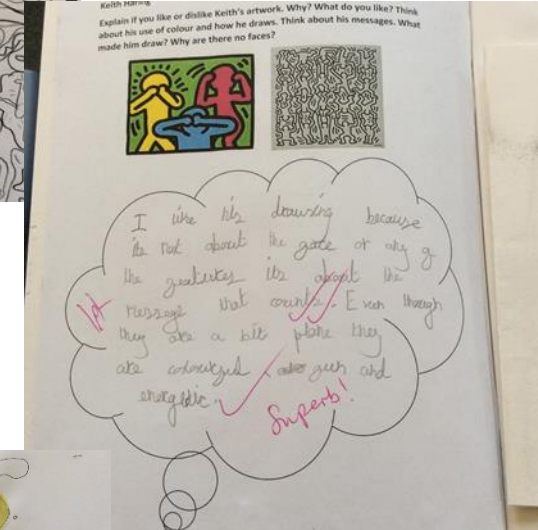 Keith Haring
Explain if you like or dislike Keith's artwork. Why? What do you like? Think
about his use of colour and how he draws. Think about his messages. What
made him draw? Why are there no faces?
I like his drawsing because
its not about the gace or any g
the geatures its about the
message that counts. Even though
they are a bit plane they
are colourged, gun and
energetic.
Superb!